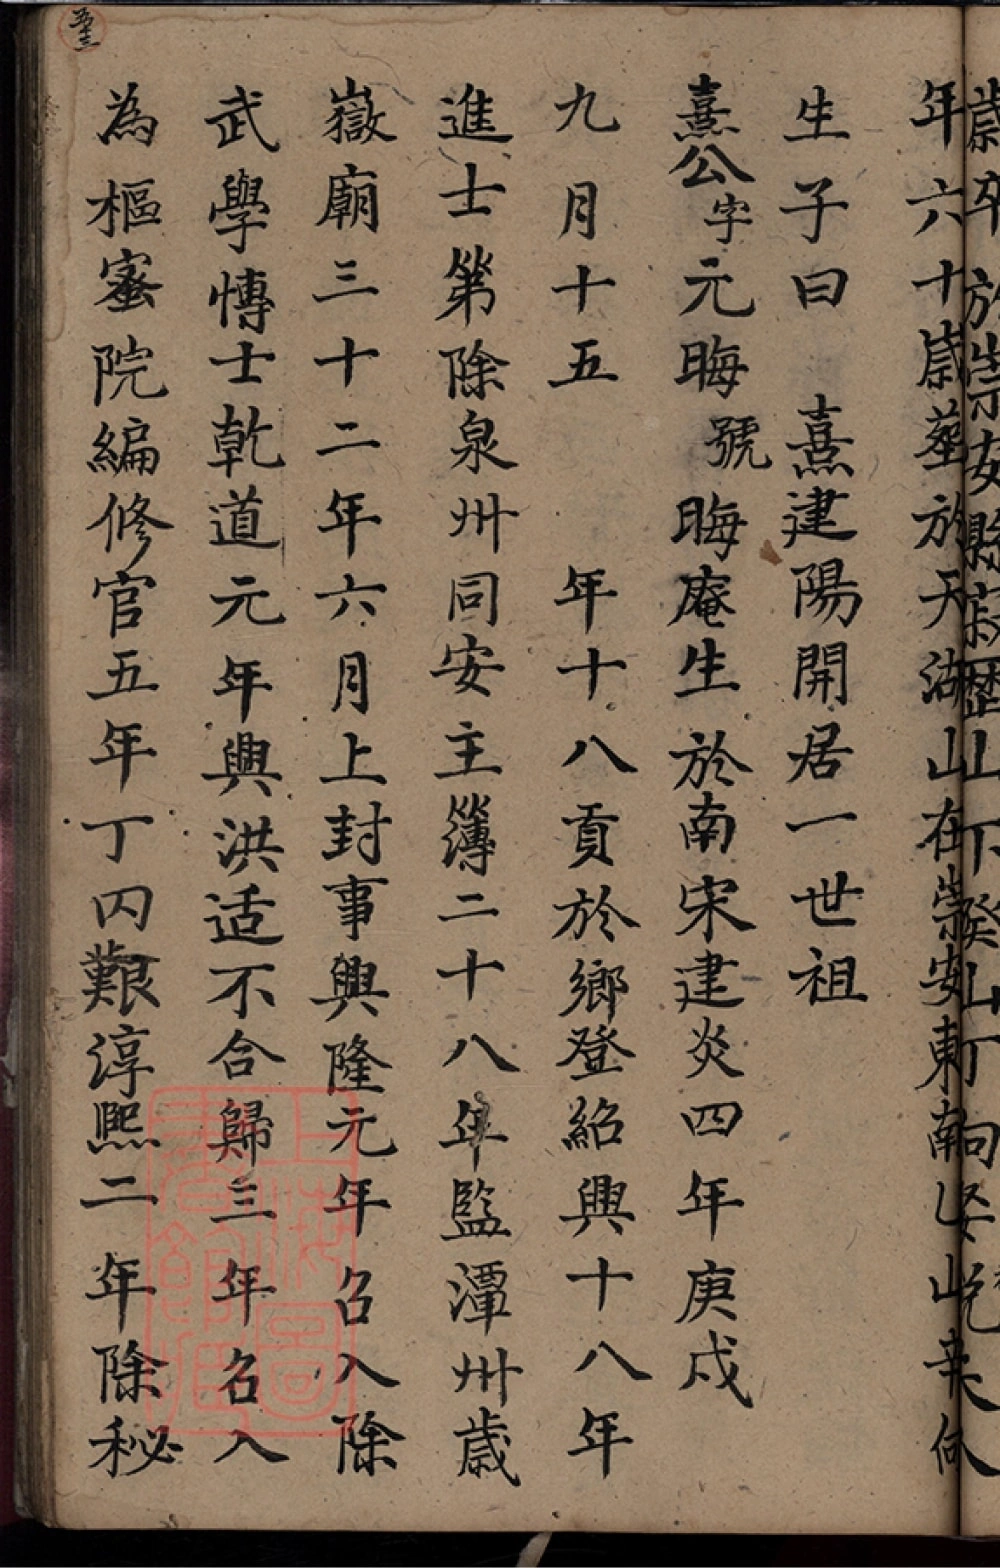 歲卒於崇安縣寂歷山下癸山丁向坐
年六十歲塟於天湖山在崇安東南乙山辛向
生子曰熹建陽開居一世祖
熹公字元晦號晦庵生於南宋建炎四年庚戌
九月十五年十八貢於鄉登紹興十八年
進士第除泉州同安主簿二十八年監潭州歲
嶽廟三十二年六月上封事興隆元年召入除
武學愽士乾道元年與洪适不合歸三年召入
為樞蜜院編修官五年丁内艱淳熙二年除秘
五十三
上海圖書館藏